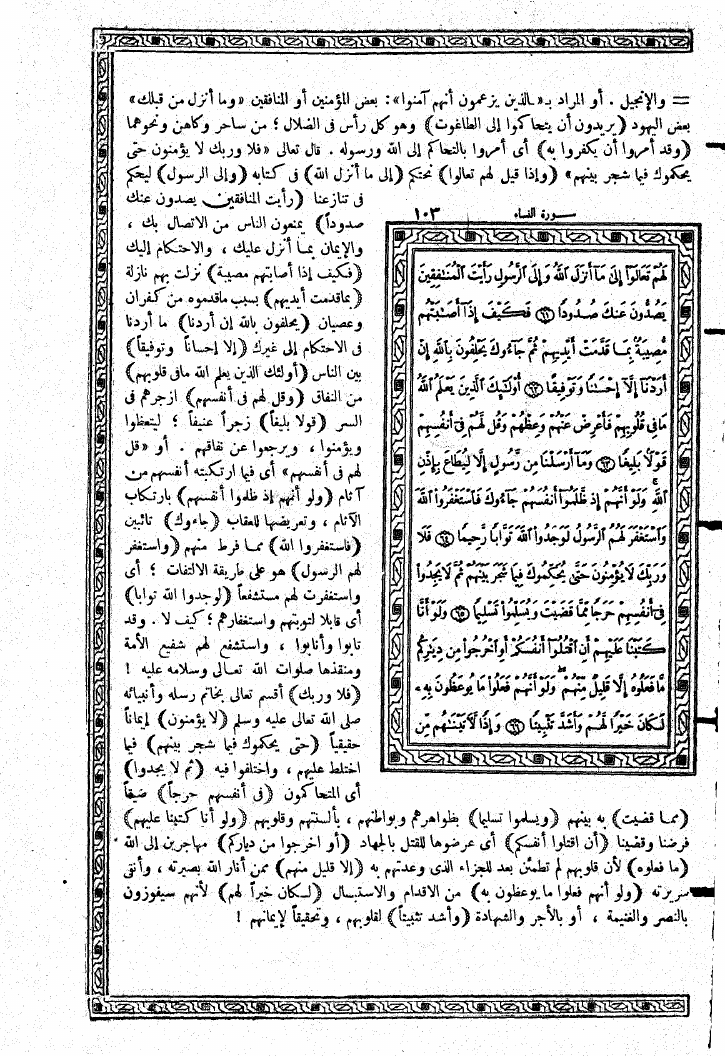 = والإنجيل . أو المراد بـ «الذين يزعمون أنهم آمنوا»: بعض المؤمنين أو المنافقين «وما أنزل من قبلك»
بعض اليهود (يريدون أن يتحاكموا إلى الطاغوت) وهو كل رأس فى الضلال ؛ من ساحر وكاهن ونحوهما
(وقد أمروا أن يكفروا به) أى أمروا بالتحاكم إلى الله ورسوله . قال تعالى «فلا وربك لا يؤمنون حتى
يحكموك فيما شجر بينهم» (وإذا قيل لهم تعالوا) نحتكم (إلى ما أنزل الله) فى كتابه (وإلى الرسول) ليحكم
فى تنازعنا (رأيت المنافقين يصدون عنك
صدوداً) يمنعون الناس من الاتصال بك ،
والإيمان بما أنزل عليك ، والاحتكام إليك
(فكيف إذا أصابتهم مصيبة) نزلت بهم نازلة
(بما قدمت أيديهم) بسبب ماقدموه من كفران
وعصيان (يحلفون بالله إن أردنا) ما أردنا
فى الاحتكام إلى غيرك (إلا إحساناً وتوفيقاً)
بين الناس (أولئك الذين يعلم الله مافى قلوبهم)
من النفاق (وقل لهم فى أنفسهم) ازجرهم فى
السر (قولا بليغاً) زجراً عنيفاً ؛ ليتعظوا
ويؤمنوا ، ويرجعوا عن نفاقهم . أو «قل
لهم فى أنفسهم» أى فيما ارتكبته أنفسهم من
آثام (ولو أنهم إذ ظلموا أنفسهم) بارتكاب
الآثام ، وتعريضها للعقاب (جاءوك) تائبين
(فاستغفروا الله) مما فرط منهم (واستغفر
لهم الرسول) هو على طريقة الالتفات ؛ أى
واستغفرت لهم مستشفعاً (لوجدوا الله تواباً)
أى قابلا لتوبتهم واستغفارهم ؛ كيف لا . وقد
تابوا وأنابوا ، واستشفع لهم شفيع الأمة
ومنقذها صلوات الله تعالى وسلامه عليه !
(فلا وربك) أقسم تعالى بخاتم رسله وأنبيائه
صلى الله تعالى عليه وسلم (لا يؤمنون) إيماناً
حقيقياً (حتى يحكموك فيما شجر بينهم) فيما
اختلط عليهم ، واختلفوا فيه (ثم لا يجدوا)
أى المتحاكمون (فى أنفسهم حرجاً) ضيقاً
سورة النساء ١٠٣
لَهُمْ تَعَالَوْا إِلَىٰ مَا أَنزَلَ اللَّهُ وَإِلَى الرَّسُولِ رَأَيْتَ الْمُنَافِقِينَ
يَصُدُّونَ عَنكَ صُدُودًا ﴿٦١﴾ فَكَيْفَ إِذَا أَصَابَتْهُم
مُّصِيبَةٌ بِمَا قَدَّمَتْ أَيْدِيهِمْ ثُمَّ جَاءُوكَ يَحْلِفُونَ بِاللَّهِ إِنْ
أَرَدْنَا إِلَّا إِحْسَانًا وَتَوْفِيقًا ﴿٦٢﴾ أُولَٰئِكَ الَّذِينَ يَعْلَمُ اللَّهُ
مَا فِي قُلُوبِهِمْ فَأَعْرِضْ عَنْهُمْ وَعِظْهُمْ وَقُل لَّهُمْ فِي أَنفُسِهِمْ
قَوْلًا بَلِيغًا ﴿٦٣﴾ وَمَا أَرْسَلْنَا مِن رَّسُولٍ إِلَّا لِيُطَاعَ بِإِذْنِ
اللَّهِ وَلَوْ أَنَّهُمْ إِذ ظَّلَمُوا أَنفُسَهُمْ جَاءُوكَ فَاسْتَغْفَرُوا اللَّهَ
وَاسْتَغْفَرَ لَهُمُ الرَّسُولُ لَوَجَدُوا اللَّهَ تَوَّابًا رَّحِيمًا ﴿٦٤﴾ فَلَا
وَرَبِّكَ لَا يُؤْمِنُونَ حَتَّىٰ يُحَكِّمُوكَ فِيمَا شَجَرَ بَيْنَهُمْ ثُمَّ لَا يَجِدُوا
فِي أَنفُسِهِمْ حَرَجًا مِّمَّا قَضَيْتَ وَيُسَلِّمُوا تَسْلِيمًا ﴿٦٥﴾ وَلَوْ أَنَّا
كَتَبْنَا عَلَيْهِمْ أَنِ اقْتُلُوا أَنفُسَكُمْ أَوِ اخْرُجُوا مِن دِيَارِكُم
مَّا فَعَلُوهُ إِلَّا قَلِيلٌ مِّنْهُمْ وَلَوْ أَنَّهُمْ فَعَلُوا مَا يُوعَظُونَ بِهِ
لَكَانَ خَيْرًا لَّهُمْ وَأَشَدَّ تَثْبِيتًا ﴿٦٦﴾ وَإِذًا لَّآتَيْنَاهُم مِّن
(مما قضيت) به بينهم (ويسلموا تسليما) بظواهرهم وبواطنهم ، بألسنتهم وقلوبهم (ولو أنا كتبنا عليهم)
فرضنا وقضينا (أن اقتلوا أنفسكم) أى عرضوها للقتل بالجهاد (أو اخرجوا من دياركم) مهاجرين إلى الله
(ما فعلوه) لأن قلوبهم لم تطمئن بعد للجزاء الذى وعدتهم به (إلا قليل منهم) ممن أنار الله بصيرته ، وأنقى
سريرته (ولو أنهم فعلوا ما يوعظون به) من الاقدام والاستبسال (لكان خيراً لهم) لأنهم سيفوزون
بالنصر والغنيمة ، أو بالأجر والشهادة (وأشد تثبيتاً) لقلوبهم ، وتحقيقاً لإيمانهم !